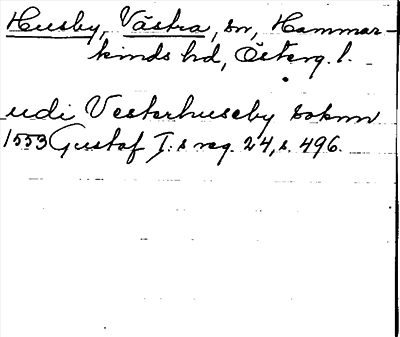 Husby, Västra, sn, Hammar-
kinds hd, Österg. l.
udi Vesterhuseby soknn
1553 Gustaf I:s reg. 24, s. 496.